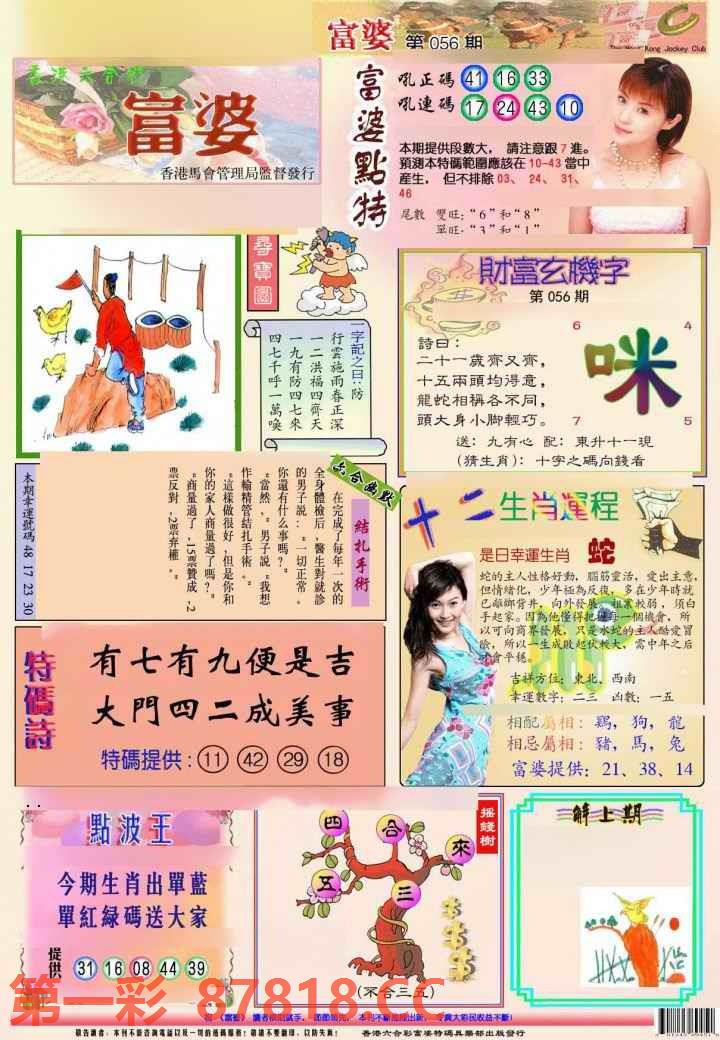 富婆 第056期
The Hong Kong Jockey Club
富婆
香港馬會管理局監督發行
富婆點特
吼正碼 41 16 33
吼連碼 17 24 43 10
本期提供段數大， 請注意跟 7 進。
預測本特碼範圍應該在 10-43 當中
産生， 但不排除 03、 24、 31、
46
尾數 雙旺:“6”和“8”
單旺:“3”和“1”
尋寶圖
一字記之曰:防
行雲施雨春正深
一二洪福四齊天
一九有防四七來
四七千呼一萬喚
財富玄機字
第 056 期
6 4
咪
7 5
詩曰:
二十一歲齊又齊，
十五兩頭均得意，
龍蛇相稱各不同，
頭大身小脚輕巧。
送: 九有心 配: 東升十一現
(猜生肖): 十字之碼向錢看
六合幽默
結扎手術
在完成了每年一次的
全身體檢后,醫生對就診
的男子説:“一切正常。
你還有什么事嗎?”
“當然,”男子説,“我想
作輸精管結扎手術。”
“這樣做很好,但是你和
你的家人商量過了嗎?”
“商量過了,15票贊成,2
票反對,2票弃權。”
本期幸運號碼 48 17 23 30
十二生肖運程
是日幸運生肖 蛇
蛇的主人性格好動，腦筋靈活，愛出主意，
但情緒化，少年極為反復，多在少年時就
已離鄉背井，向外發展，祖業較弱，須白
手起家。因為他懂得把握每一個機會，所
以可向商界發展，只是水蛇的主人酷愛冒
險，所以一生成敗起伏較大，當中年之后
才會平穩。
吉祥方位: 東北、西南
幸運數字: 二三 凶數: 一五
相配屬相: 鷄，狗，龍
相忌屬相: 豬，馬，兔
富婆提供: 21、38、14
特碼詩
有七有九便是吉
大門四二成美事
特碼提供: 11 42 29 18
點波王
今期生肖出單藍
單紅緑碼送大家
提供 31 16 08 44 39
搖錢樹
四 合 來
五 三
(不合三五)
解上期
第一彩 87818.CC
敬告讀者: 本刊不設咨詢電話以及一切的透碼服務! 敬請不要翻印，以防失真!
香港六合彩富婆特碼俱樂部出版發行